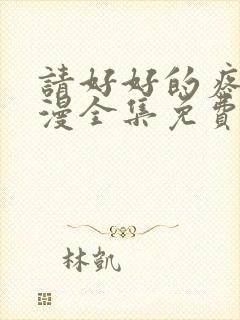 請好好的疼
漫全集免費
林凱